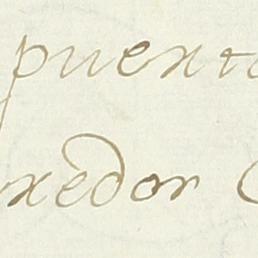 puerto
xedor